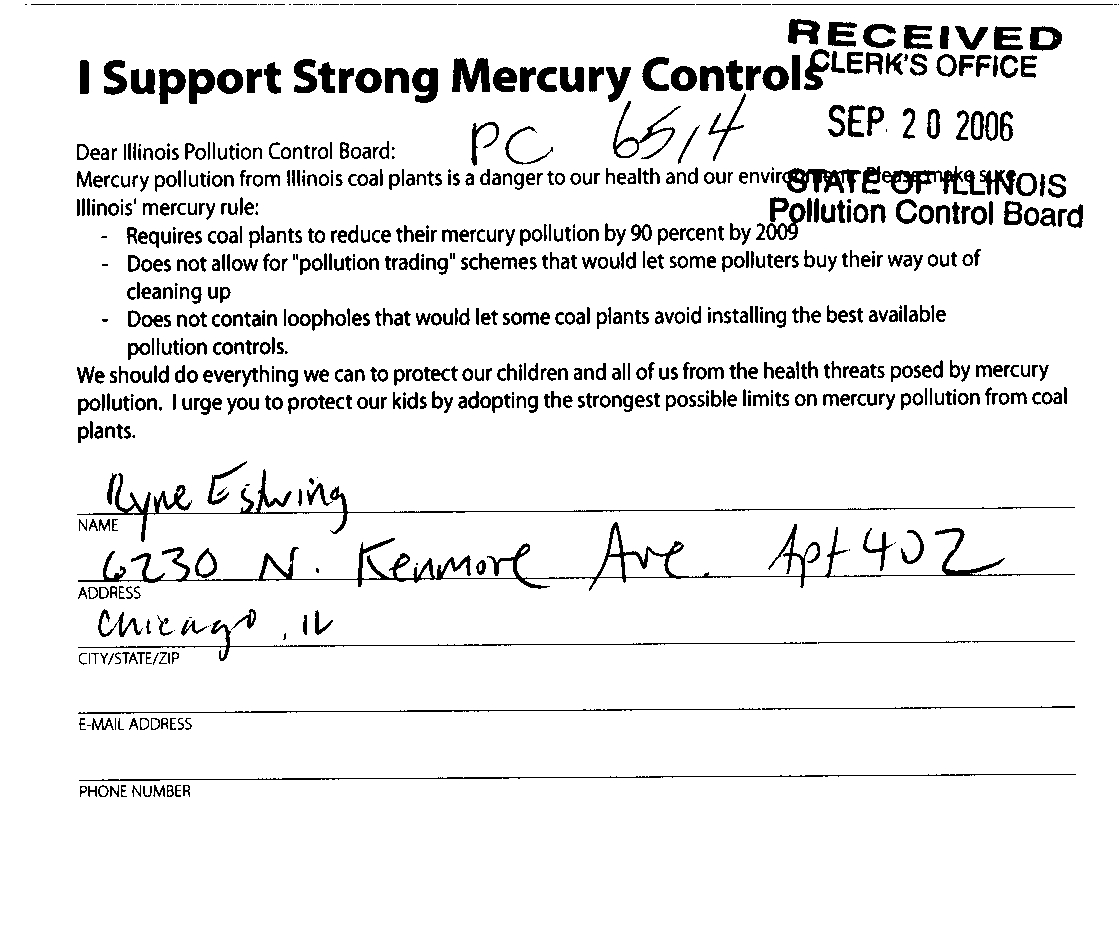 RECEIVED
CLERK'S OFFICE
I Support Strong Mercury Controls
SEP 20 2006
PC 6514
Dear Illinois Pollution Control Board:
Mercury pollution from Illinois coal plants is a danger to our health and our environment. Please make sure
STATE OF ILLINOIS
Illinois' mercury rule:
Pollution Control Board
- Requires coal plants to reduce their mercury pollution by 90 percent by 2009
- Does not allow for "pollution trading" schemes that would let some polluters buy their way out of
cleaning up
- Does not contain loopholes that would let some coal plants avoid installing the best available
pollution controls.
We should do everything we can to protect our children and all of us from the health threats posed by mercury
pollution. I urge you to protect our kids by adopting the strongest possible limits on mercury pollution from coal
plants.
Ryne Estwing
NAME
6230 N. Kenmore Ave. Apt 402
ADDRESS
Chicago, IL
CITY/STATE/ZIP
E-MAIL ADDRESS
PHONE NUMBER